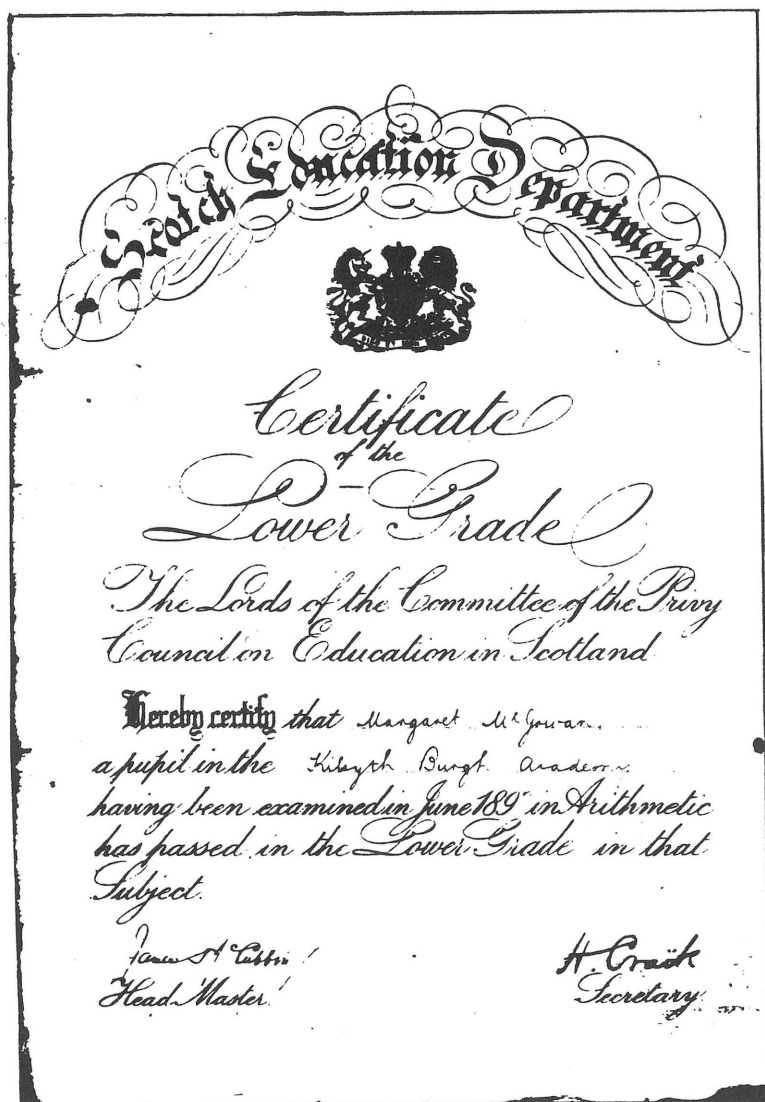 Scotch Education Department
Certificate
of the
Lower Grade
The Lords of the Committee of the Privy
Council on Education in Scotland
Hereby certify that Margaret McGowan
a pupil in the Kilsyth Burgh Academy
having been examined in June 189 in Arithmetic
has passed in the Lower Grade in that
Subject.
James
Head Master
H. Craik
Secretary